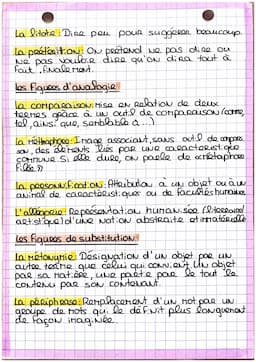 La litote: Dire peu pour suggérer beaucoup
La prétérition: On prétend ne pas dire ou
ne pas vouloir dire qu'on dira tout à
fait finalement.
Les Figures d'analogie
La comparaison: Mise en relation de deux
termes grâce à un outil de comparaison (comme,
tel, ainsi que, semblable à ...)
La métaphore: Image associant, sans outil de compa
son, des éléments liés par une caractéristique
commune. Si elle dure, on parle de métaphore
filée
La personnification: Attribution à un objet ou à un
animal de caractéristiques ou de facultés humaines
L'allégorie: Représentation humanisée (littéraire/
artistique) d'une notion abstraite et immatérielle
Les Figures de substitution
La métonymie: Désignation d'un objet par un
autre terme que celui qui convient. Un objet
par sa matière, une partie par le tout le
contenu par son contenant.
La périphrase: Remplacement d'un mot par un
groupe de mots qui le définit plus longuement
de façon imaginée.